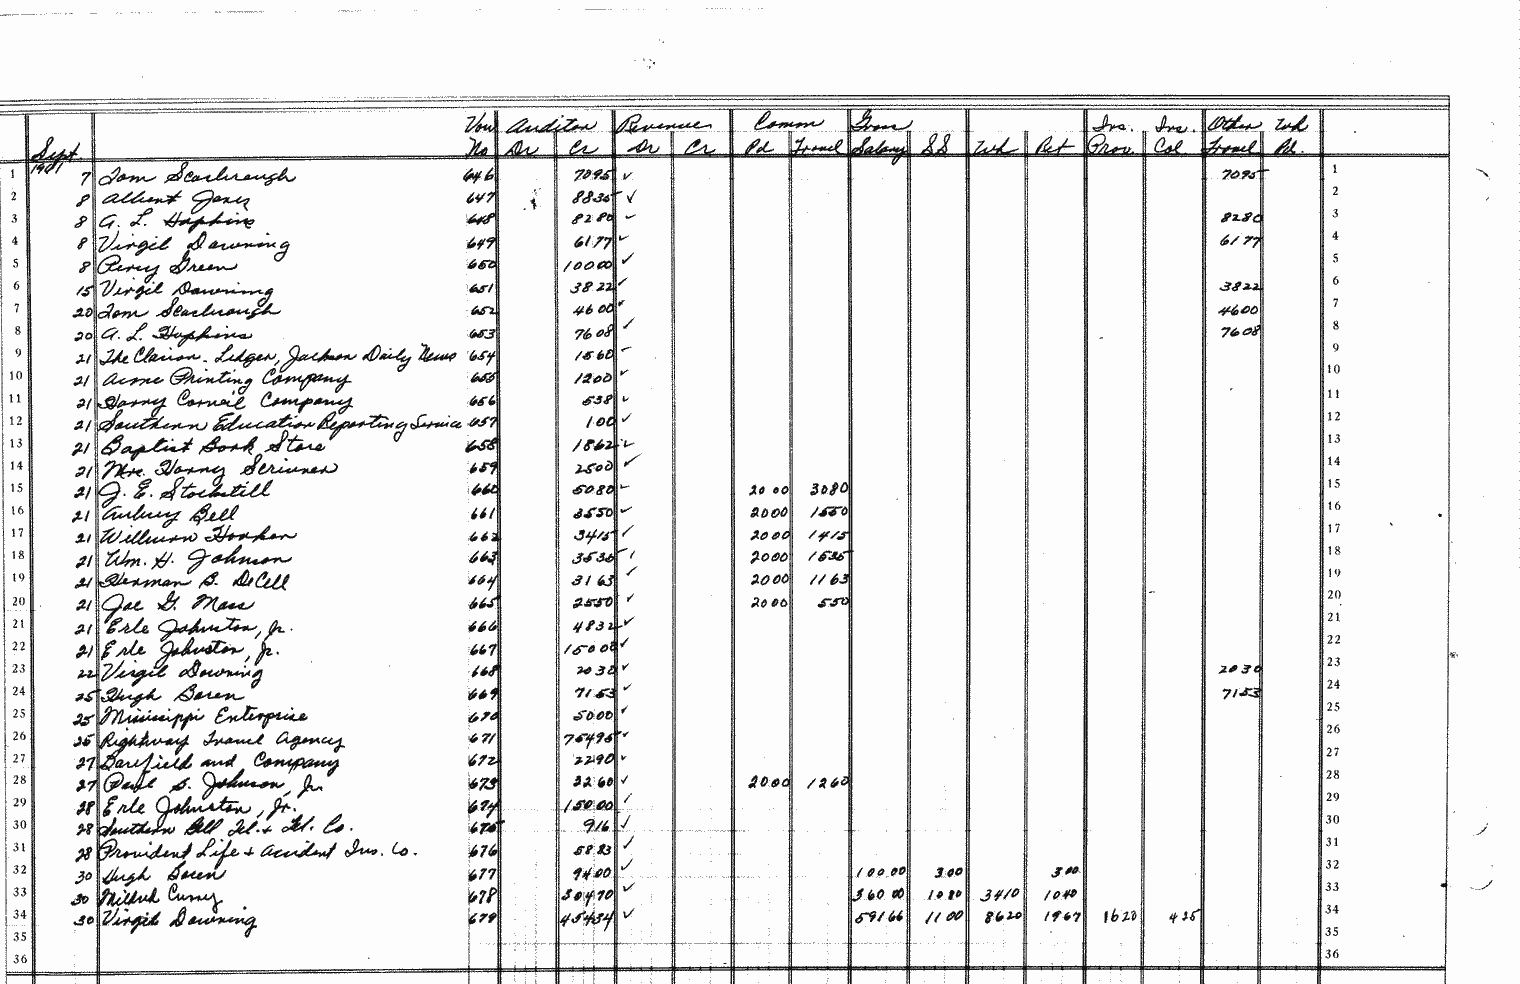 Vou Auditor Revenue Comm Gross Ins. Ins. Other Wh
Sept No Dr Cr Dr Cr Pd Travel Salary SS Wh Ret Prov. Col Travel Pd.
1961
1 7 Tom Scarbrough 646 7095 ✓ 7095 1
2 8 Albert Jones 647 8835 ✓ 2
3 8 A. L. Hopkins 648 8280 ✓ 8280 3
4 8 Virgil Downing 649 6177 ✓ 6177 4
5 8 Percy Green 650 10000 ✓ 5
6 15 Virgil Downing 651 3822 ✓ 3822 6
7 20 Tom Scarbrough 652 4600 ✓ 4600 7
8 20 A. L. Hopkins 653 7608 ✓ 7608 8
9 21 The Clarion-Ledger, Jackson Daily News 654 1560 ✓ 9
10 21 Acme Printing Company 655 1200 ✓ 10
11 21 Harry Corneil Company 656 538 ✓ 11
12 21 Southern Education Reporting Service 657 100 ✓ 12
13 21 Baptist Book Store 658 1862 ✓ 13
14 21 Mrs. Harry Scrivner 659 2500 ✓ 14
15 21 J. E. Stockstill 660 5080 ✓ 2000 3080 15
16 21 Aubrey Bell 661 3550 ✓ 2000 1550 16
17 21 Hooker 662 3415 ✓ 2000 1415 17
18 21 Wm. H. Johnson 663 3535 ✓ 2000 1535 18
19 21 Herman B. DeCell 664 3163 ✓ 2000 1163 19
20 21 Joe G. Moss 665 2550 ✓ 2000 550 20
21 21 Erle Johnston, Jr. 666 4832 ✓ 21
22 21 Erle Johnston, Jr. 667 15000 ✓ 22
23 22 Virgil Downing 668 2030 ✓ 2030 23
24 25 Hugh Boren 669 7153 ✓ 7153 24
25 25 Mississippi Enterprise 670 5000 ✓ 25
26 25 Rightway Travel Agency 671 75495 ✓ 26
27 27 Barefield and Company 672 2290 ✓ 27
28 27 Paul B. Johnson, Jr. 673 3260 ✓ 2000 1260 28
29 28 Erle Johnston, Jr. 674 15000 ✓ 29
30 28 Southern Bell Tel. + Tel. Co. 675 916 ✓ 30
31 28 Provident Life + Accident Ins. Co. 676 5883 ✓ 31
32 30 Hugh Boren 677 9400 ✓ 100.00 300 300 32
33 30 Mildred Curry 678 30470 ✓ 360 00 1080 3410 1040 33
34 30 Virgil Downing 679 45434 ✓ 59166 1100 8620 1967 1620 425 34
35 35
36 36